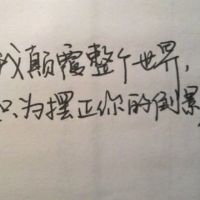 我颠覆整个世界,
只为摆正你的倒影